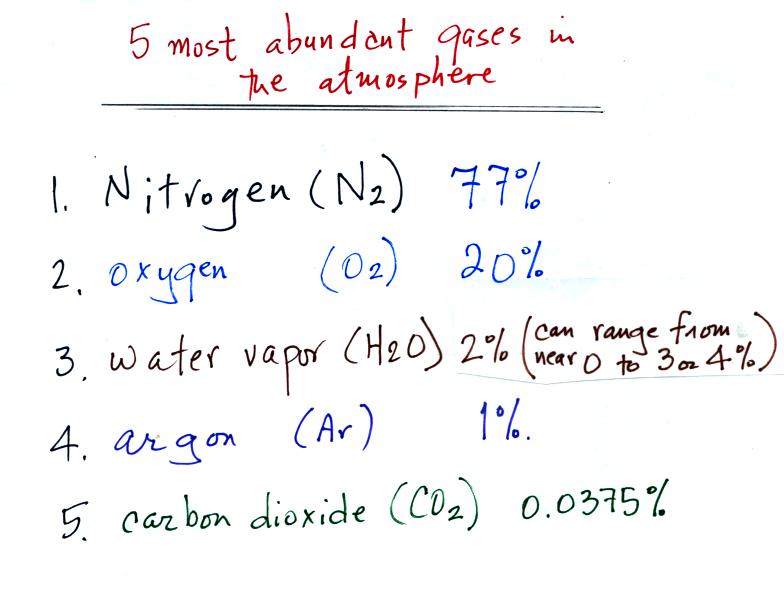 5 most abundant gases in
the atmosphere
1. Nitrogen (N2) 77%
2. oxygen (O2) 20%
3. water vapor (H2O) 2% (can range from
near 0 to 3 or 4%)
4. argon (Ar) 1%.
5. carbon dioxide (CO2) 0.0375%